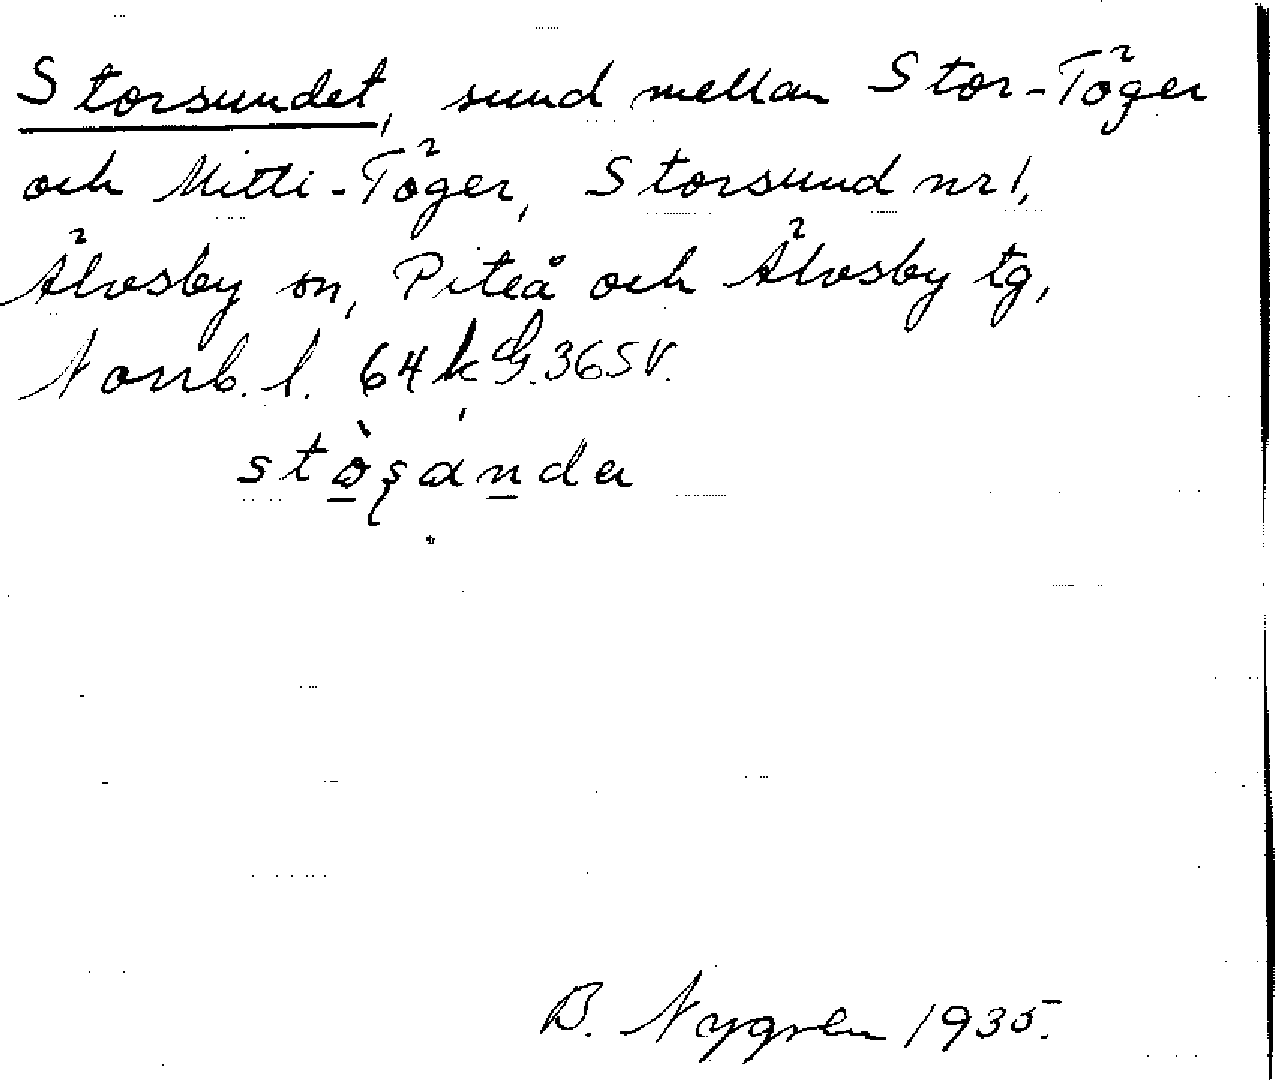 Storsundet, sund mellan Stor-Töger
och Mitti-Töger, Storsund nr 1,
Älvsby sn, Piteå och Älvsby tg,
Norrb. l. 64 k G.365V.
B. Nygren 1935.